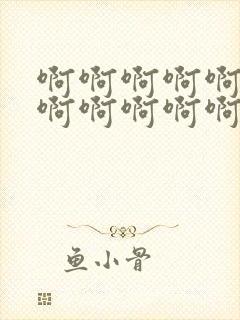 啊啊啊啊啊
啊啊啊啊啊
鱼小骨